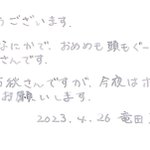 うございます。
なにかで、おめめも頭もぐー
さんです。
欲さんですが、今夜はホ
お願いします。
2023.4.26 竜田